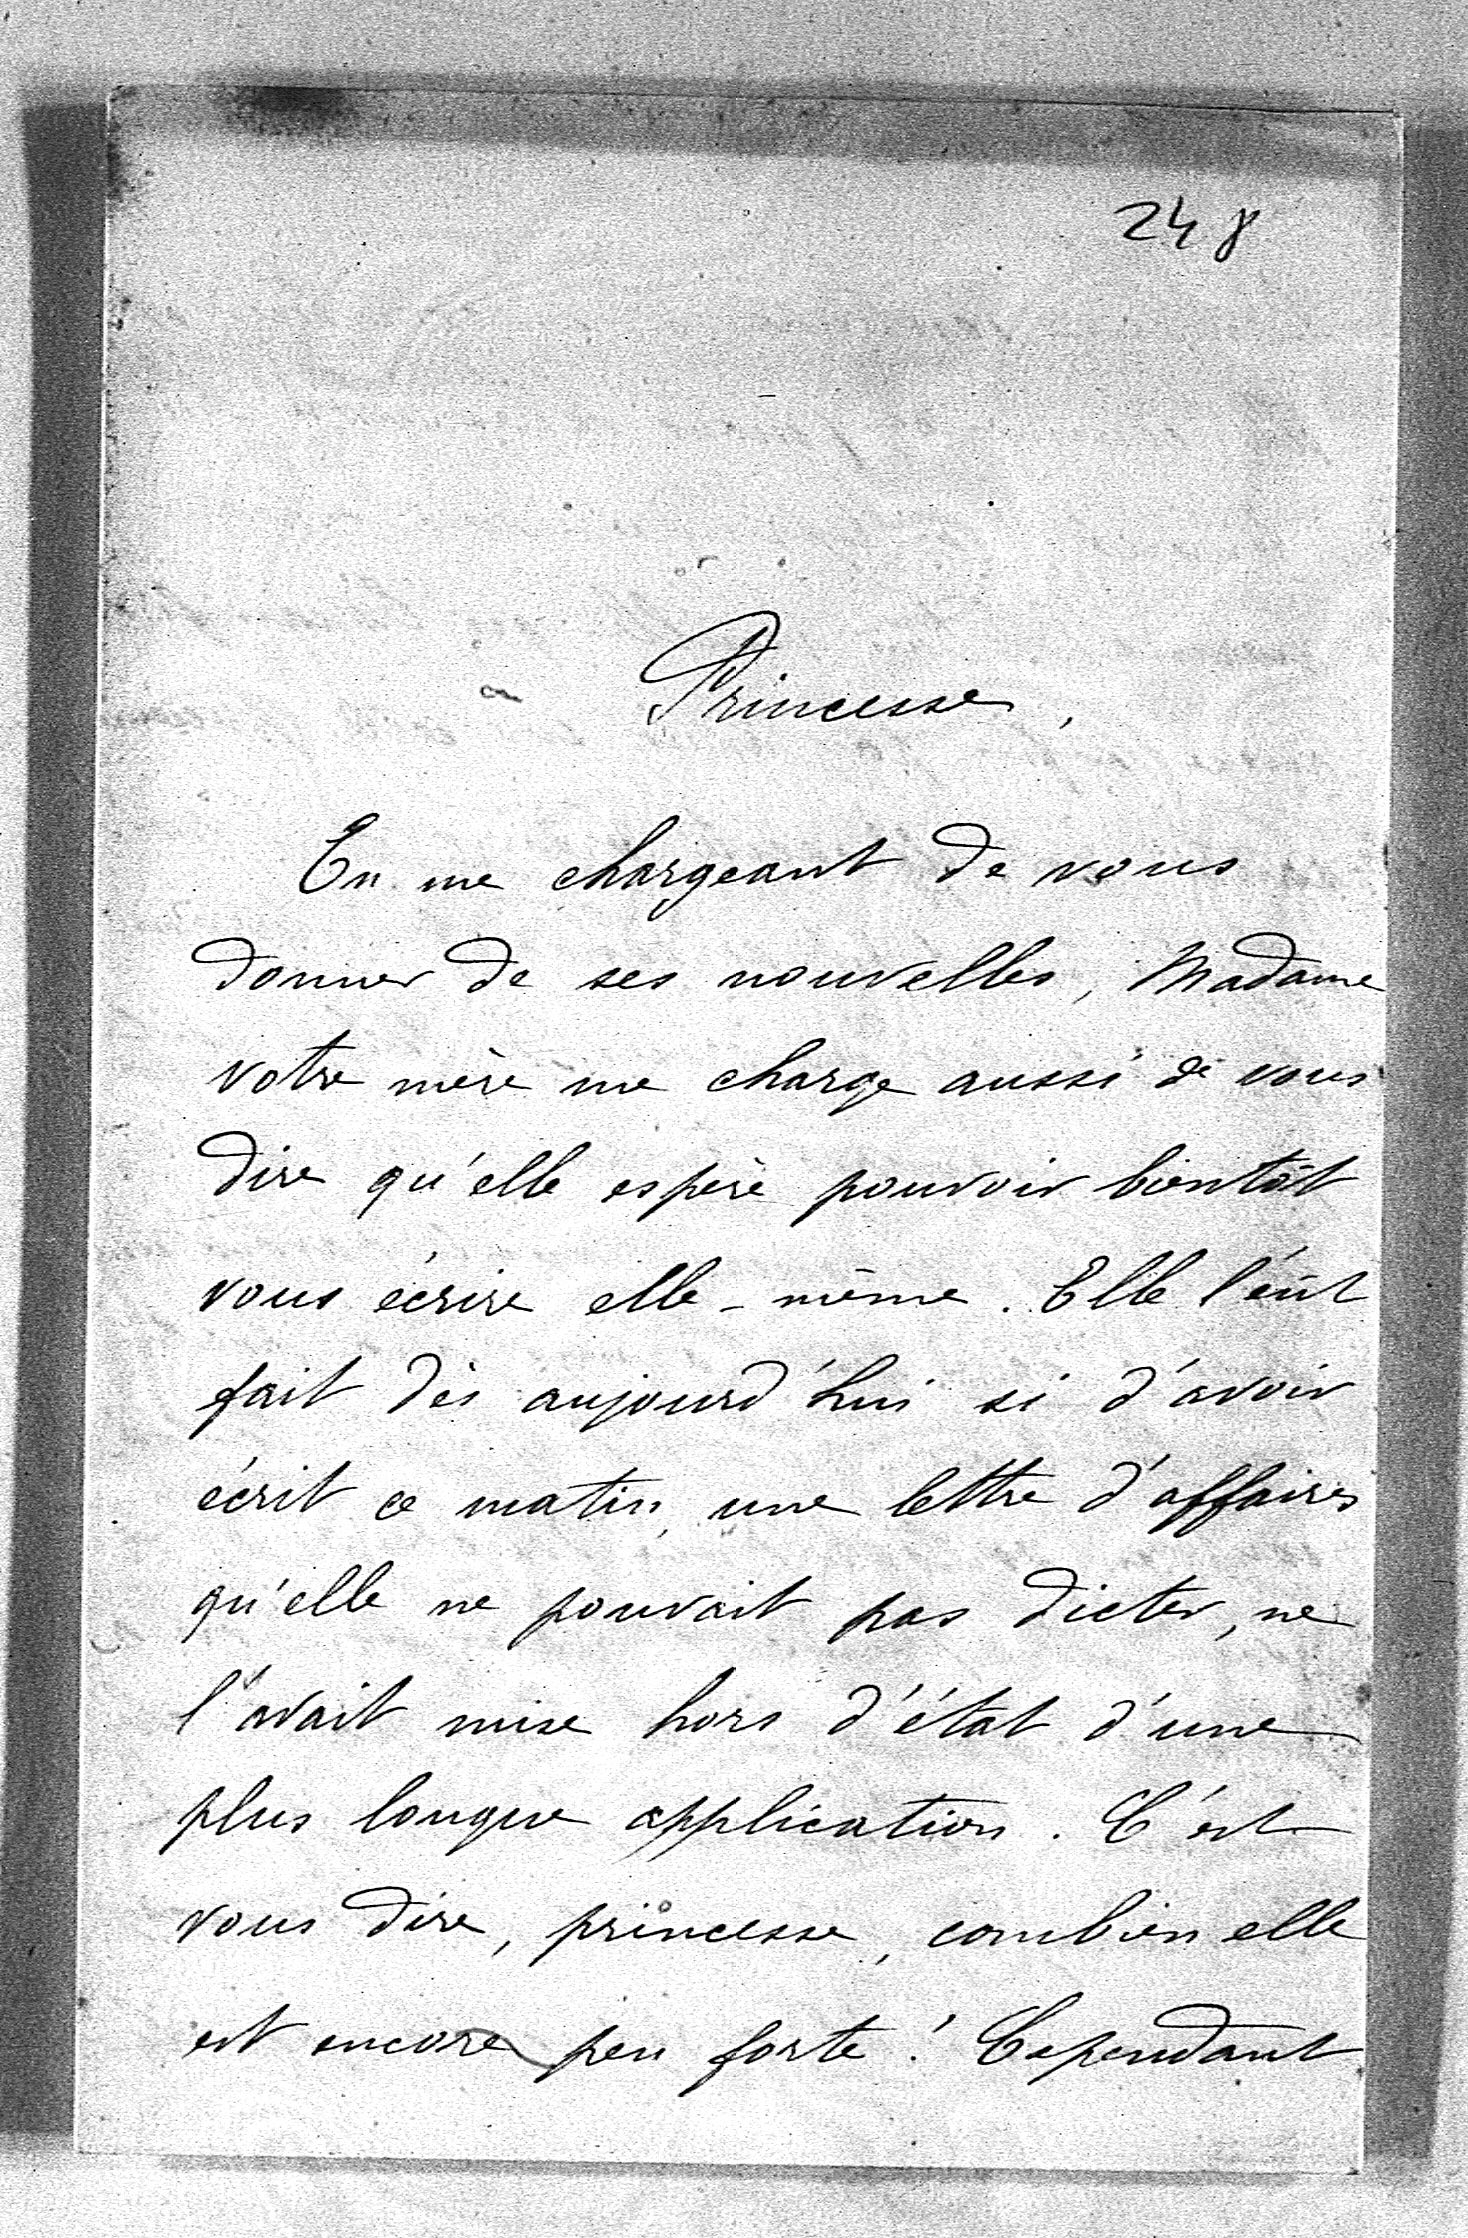 248
Princesse,
En me chargeant de vous
donner de ses nouvelles, Madame
votre mère me charge aussi de vous
dire qu'elle espère pouvoir bientôt
vous écrire elle-même. Elle l'eût
fait dès aujourd'hui si d'avoir
écrit ce matin, une lettre d'affaires
qu'elle ne pouvait pas dicter, ne
l'avait mise hors d'état d'une
plus longue application. C'est
vous dire, princesse, combien elle
est encore peu forte! Cependant